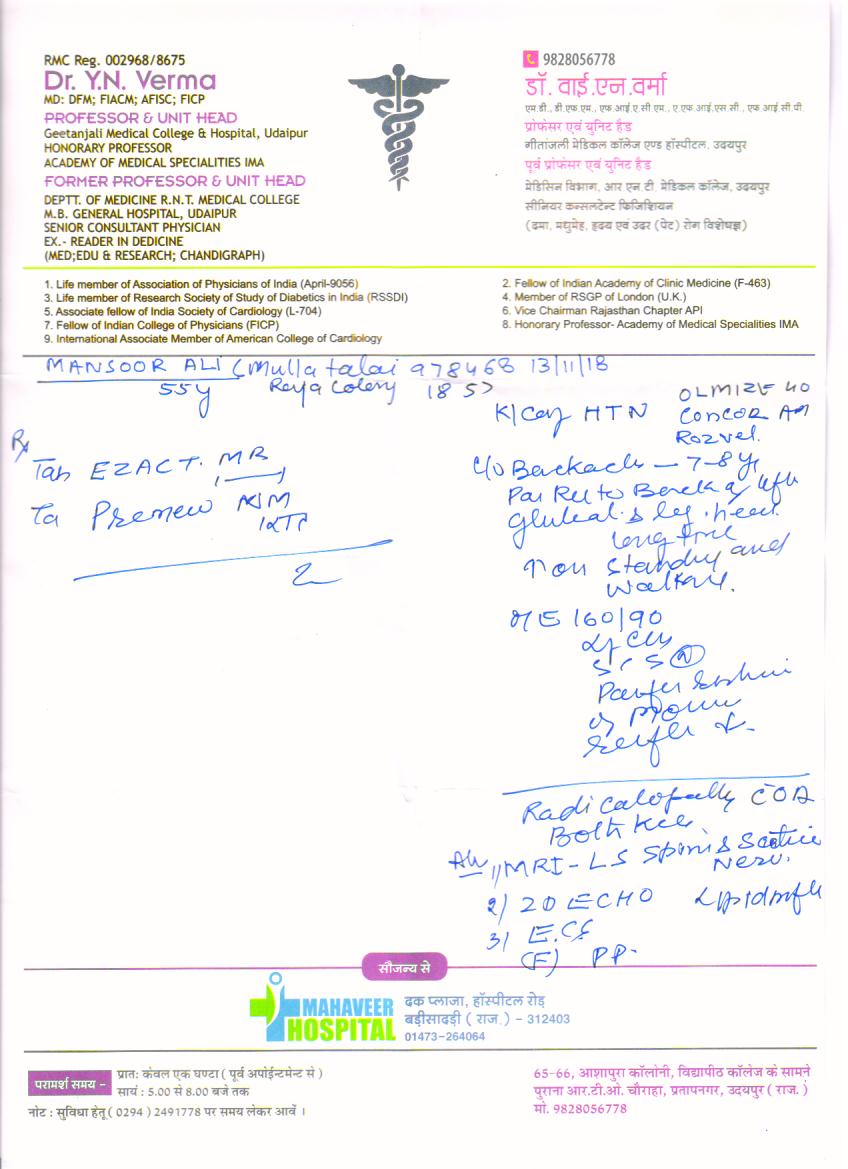 RMC Reg. 002968/8675
Dr. Y.N. Verma
MD: DFM; FIACM; AFISC; FICP
PROFESSOR & UNIT HEAD
Geetanjali Medical College & Hospital, Udaipur
HONORARY PROFESSOR
ACADEMY OF MEDICAL SPECIALITIES IMA
FORMER PROFESSOR & UNIT HEAD
DEPTT. OF MEDICINE R.N.T. MEDICAL COLLEGE
M.B. GENERAL HOSPITAL, UDAIPUR
SENIOR CONSULTANT PHYSICIAN
EX.- READER IN DEDICINE
(MED;EDU & RESEARCH; CHANDIGRAPH)
9828056778
डॉ. वाई.एन.वर्मा
एम.डी., डी.एफ.एम., एफ.आई.ए.सी.एम., ए.एफ.आई.एस.सी., एफ.आई.सी.पी.
प्रोफेसर एवं युनिट हैड
गीतांजली मेडिकल कॉलेज एण्ड हॉस्पीटल, उदयपुर
पूर्व प्रोफेसर एवं युनिट हैड
मेडिसिन विभाग, आर.एन.टी. मेडिकल कॉलेज, उदयपुर
सीनियर कन्सलटेन्ट फिजिशियन
(दमा, मधुमेह, हृदय एवं उदर (पेट) रोग विशेषज्ञ)
1. Life member of Association of Physicians of India (April-9056)
2. Fellow of Indian Academy of Clinic Medicine (F-463)
3. Life member of Research Society of Study of Diabetics in India (RSSDI)
4. Member of RSGP of London (U.K.)
5. Associate fellow of India Society of Cardiology (L-704)
6. Vice Chairman Rajasthan Chapter API
7. Fellow of Indian College of Physicians (FICP)
8. Honorary Professor- Academy of Medical Specialities IMA
9. International Associate Member of American College of Cardiology
MANSOOR ALI (Mulla talai 978468 13/11/18
55y Raya Colony 18 57
K/Cay HTN
OLMIZE 40
CONCOR AM
Rozvel.
Rx
Tab EZACT. MR
Ta
2
C/o Backach - 7-8 y
leg.
long time
on Standing and
Walking.
O/E 160/90
Radicalopally COA
Both Knee
1) MRI - LS Spine & Sciatic
Nerv.
2) 2D ECHO Lipid profile
3) E.CG
(F) PP.
सौजन्य से
MAHAVEER
HOSPITAL
ढक प्लाजा, हॉस्पीटल रोड़
बड़ीसादड़ी ( राज.) - 312403
01473-264064
परामर्श समय -
प्रातः केवल एक घण्टा ( पूर्व अपोईन्टमेन्ट से )
सायं : 5.00 से 8.00 बजे तक
नोट : सुविधा हेतू ( 0294 ) 2491778 पर समय लेकर आवें ।
65-66, आशापुरा कॉलोनी, विद्यापीठ कॉलेज के सामने
पुराना आर.टी.ओ. चौराहा, प्रतापनगर, उदयपुर ( राज. )
मो. 9828056778